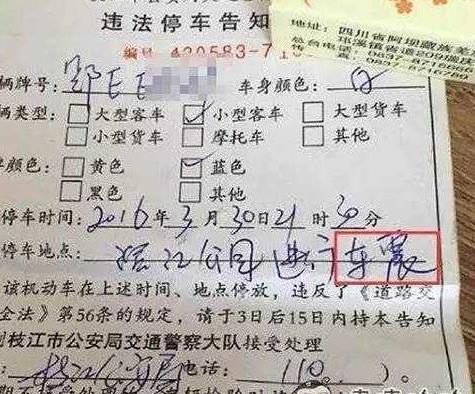 违法停车告知
编号 420583-710
地址：四川省阿坝藏族羌
邛溪镇省道209瑞庆
总台电话：0837-8716
传真：0837-8716786
辆牌号：鄂EE 车身颜色：白
辆类型：□大型客车 ☑小型客车 □大型货车
□小型货车 □摩托车 □其他
牌颜色：□黄色 ☑蓝色
□黑色 □其他
停车时间：2016年3月30日21时30分
停车地点：公园进行车震
该机动车在上述时间、地点停放，违反了《道路交
全法》第56条的规定，请于3日后15日内持本告知
到枝江市公安局交通警察大队接受处理
枝江公安局 电话：(110